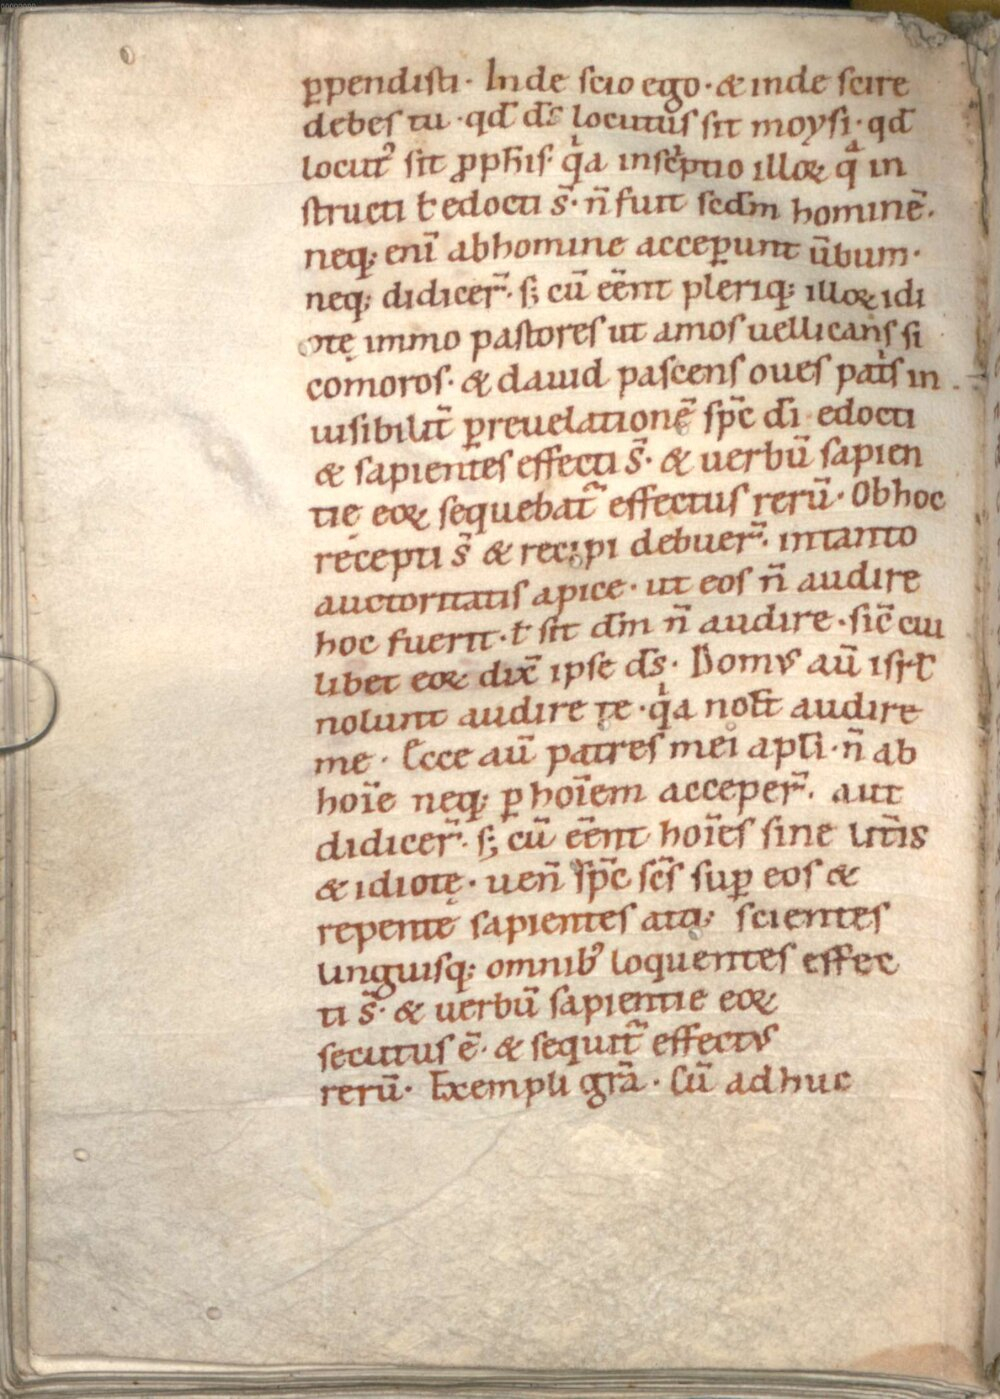 ꝑpendisti· Inde scio ego·& inde scire
debes tu·qđ d̄s locutus sit moysi·qđ
locut᾽ sit ꝓph̄is·qͥa insc͛ptio illoꝝ qͣ in
structi ł edocti s̄·n̄ fuit scđm hominē·
neq; eni̅ ab homine acceꝑunt u̅bum·
neq; didicer̄·s; cū eēnt pleriq; illoꝝ idi
otę immo pastores ut amos uellicans si
comoros·& dauid pascens oues patͥs in
uisibilit̄ ꝑ reuelationē sp̄c dī edocti
& sapientes effecti s̄·& uerbū sapien
tię eoꝝ sequebat᷑ effectus rerū·Ob hoc
recepti s̄ & recipi debuer̄·in tanto
auctoritatis apice·ut eos n̄ audire
hoc fuerit·ł sit dm̄ n̄ audire·sic̄ cui
libet eoꝝ dix̄ ipse d̄s·Domus aū isrł
nolunt audire te·qͥa nolt̄ audire
me·Ecce aū patres mei apłi·n̄ ab
hoīe neq; ꝑ hoīem acceper̄·aut
didicer̄·s; cū eēnt hoīes sine lit̄is
& idiotę·uen̄ sp̄c sc̄s suꝑ eos &
repente sapientes atq; scientes
linguisq; omnib᾽ loquentes effec
ti s̄·& uerbū sapientie eoꝝ
secutus ē·& sequit᷑ effectus
rerū·Exempli gr̄a·Cū adhuc